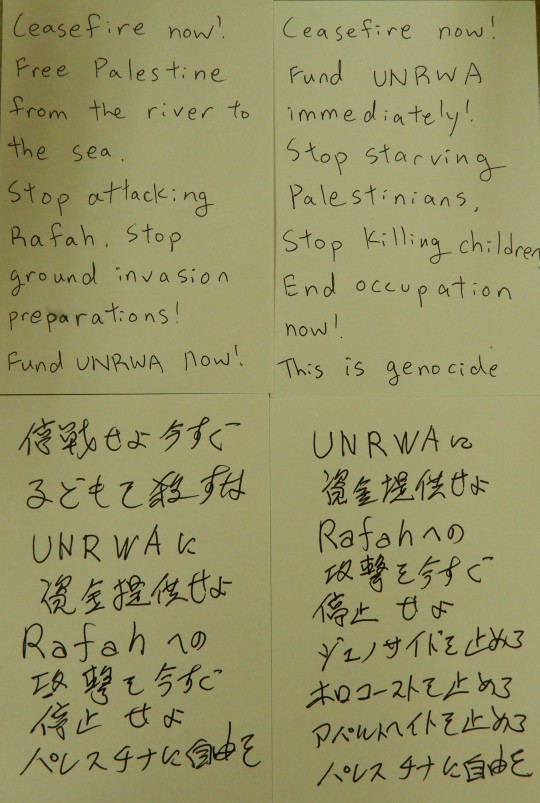 Ceasefire now!
Free Palestine
from the river to
the sea.
Stop attacking
Rafah. Stop
ground invasion
preparations!
Fund UNRWA now!
Ceasefire now!
Fund UNRWA
immediately!
Stop starving
Palestinians,
Stop killing children
End occupation
now!
This is genocide
停戦せよ今すぐ
子どもを殺すな
UNRWAに
資金提供せよ
Rafahへの
攻撃を今すぐ
停止せよ
パレスチナに自由を
UNRWAに
資金提供せよ
Rafahへの
攻撃を今すぐ
停止せよ
ジェノサイドを止めろ
ホロコーストを止めろ
アパルトヘイトを止めろ
パレスチナに自由を